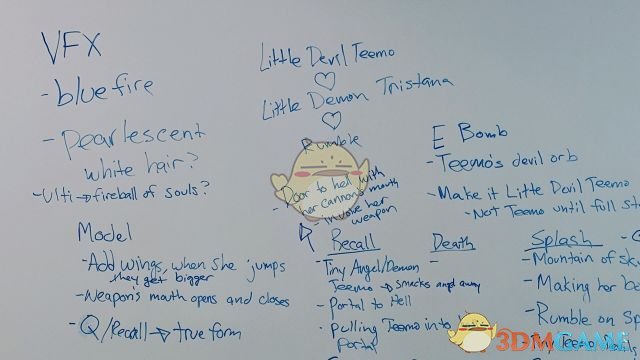 VFX
- blue fire
- pearlescent
white hair?
- Ulti → fireball of souls?
Little Devil Teemo
♡
Little Demon Tristana
♡
Rumble
- Door to hell with
her cannons mouth
- invoke her
weapon
E Bomb
- Teemo's devil orb
- Make it Little Devil Teemo
- Not Teemo until full st
Model
- Add wings, when she jumps
they get bigger
- Weapon's mouth opens and closes
- Q/Recall → true form
Recall
- Tiny Angel/Demon
Teemo → smacks angel away
- Portal to Hell
- pulling Teemo into
Portal
Death
-
Splash
- Mountain of sk
- Making her be
- Rumble on Sp
- Tiny Teemo
3DMGAME